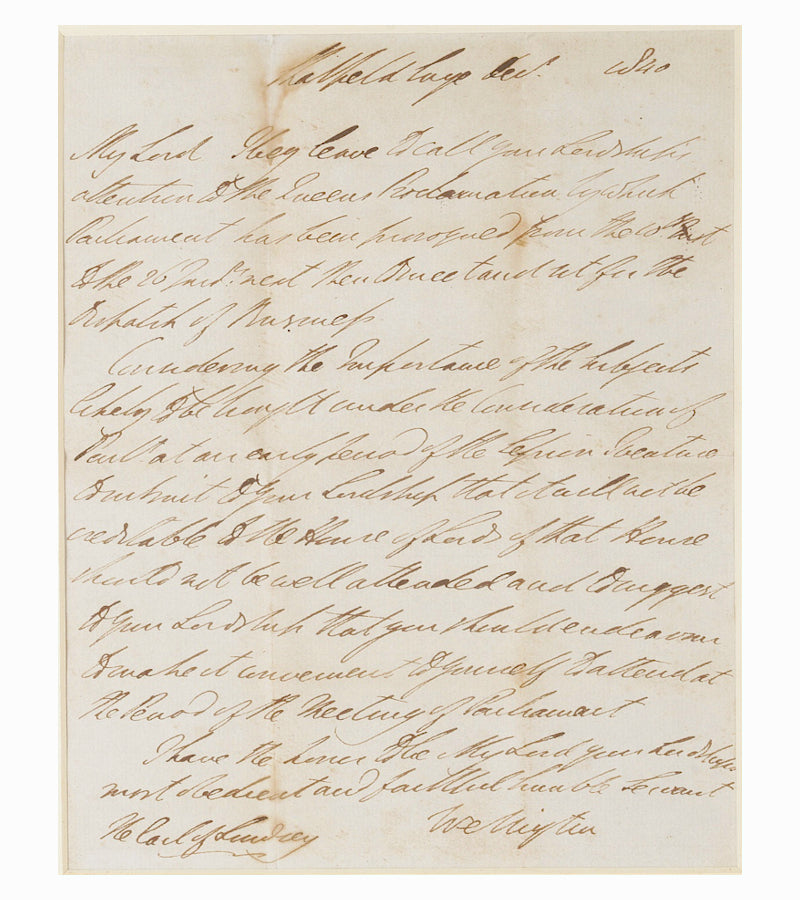 Strathfield Saye Decr. 1840
My Lord I beg leave to call your Lordship's
attention to the Queens Proclamation by which
Parliament has been prorogued from the 10th Inst
to the 26 Jany. next then to meet and sit for the
dispatch of Business
Considering the Importance of the Subjects
likely to be brought under the Consideration of
Parlt. at an early period of the Session I venture
to submit to your Lordship that it will not be
creditable to the House of Lords if that House
should not be well attended and to suggest
to your Lordship that you should endeavour
to make it convenient to yourself to attend at
the Period of the Meeting of Parliament
I have the honor to be My Lord your Lordships
most obedient and faithful humble Servant
The Earl of Lindsey Wellington